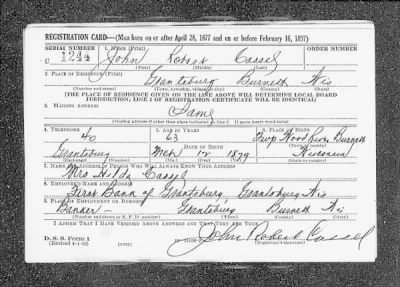 REGISTRATION CARD—(Men born on or after April 28, 1877 and on or before February 16, 1897)
SERIAL NUMBER 1. NAME (Print) ORDER NUMBER
U 1244 John Robert Cassel
2. PLACE OF RESIDENCE (Print)
Grantsburg Burnett Wis
[THE PLACE OF RESIDENCE GIVEN ON THE LINE ABOVE WILL DETERMINE LOCAL BOARD
JURISDICTION; LINE 2 OF REGISTRATION CERTIFICATE WILL BE IDENTICAL]
3. MAILING ADDRESS
Same
[Mailing address if other than place indicated on line 2. If same insert word same]
4. TELEPHONE 5. AGE IN YEARS 6. PLACE OF BIRTH
40 63 Twp Wood River Burnett
Grantsburg Mch 12 1879 Wisconsin
(Exchange) (Number) (Mo.) (Day) (Yr.)
7. NAME AND ADDRESS OF PERSON WHO WILL ALWAYS KNOW YOUR ADDRESS
Mrs Hilda Cassel
8. EMPLOYER'S NAME AND ADDRESS
First Bank of Grantsburg Grantsburg Wis
9. PLACE OF EMPLOYMENT OR BUSINESS
Banker — Grantsburg Burnett Wis
I AFFIRM THAT I HAVE VERIFIED ABOVE ANSWERS AND THAT THEY ARE TRUE.
D. S. S. Form 1
John Robert Cassel
(Registrant's signature)